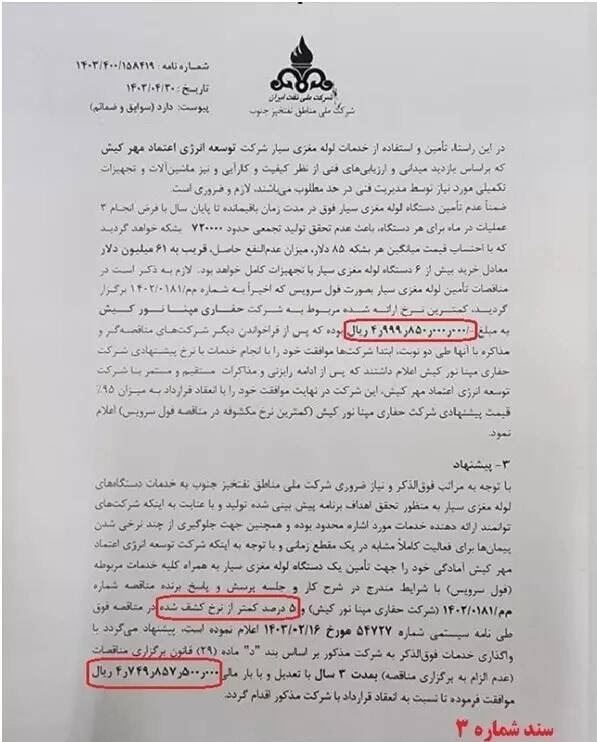 شماره نامه : ۱۴۰۳/۴۰۰/۱۵۸۴۱۹
تاریخ : ۱۴۰۳/۰۴/۳۰
پیوست: دارد (سوابق و ضمائم)
شرکت ملی نفت ایران
شرکت ملی مناطق نفتخیز جنوب
در این راستا، تأمین و استفاده از خدمات لوله مغزی سیار شرکت توسعه انرژی اعتماد مهر کیش
که براساس بازدید میدانی و ارزیابی‌های فنی از نظر کیفیت و کارآیی و نیز ماشین‌آلات و تجهیزات
تکمیلی مورد نیاز توسط مدیریت فنی در حد مطلوب می‌باشند، لازم و ضروری است.
ضمناً عدم تأمین دستگاه لوله مغزی سیار فوق در مدت زمان باقیمانده تا پایان سال با فرض انجام ۳
عملیات در ماه برای هر دستگاه، باعث عدم تحقق تولید تجمعی حدود ۷۲۰۰۰۰ بشکه خواهد گردید
که با احتساب قیمت میانگین هر بشکه ۸۵ دلار، میزان عدم‌النفع حاصل، قریب به ۶۱ میلیون دلار
معادل خرید بیش از ۶ دستگاه لوله مغزی سیار با تجهیزات کامل خواهد بود. لازم به ذکر است در
مناقصات تأمین لوله مغزی سیار بصورت فول سرویس که اخیراً به شماره مم/۱۴۰۲/۰۱۸۱ برگزار
گردید، کمترین نرخ ارائه شده مربوط به شرکت حفاری مپنا نور کیش
به مبلغ ۴٫۹۹۹٫۸۵۰٫۰۰۰٫۰۰۰/- ریال بوده که پس از فراخواندن دیگر شرکت‌های مناقصه‌گر و
مذاکره با آنها طی دو نوبت، ابتدا شرکت‌ها موافقت خود را با انجام خدمات با نرخ پیشنهادی شرکت
حفاری مپنا نور کیش اعلام داشتند که پس از ادامه رایزنی و مذاکرات مستقیم و مستمر با شرکت
توسعه انرژی اعتماد مهر کیش، این شرکت در نهایت موافقت خود را با انعقاد قرارداد به میزان ۹۵٪
قیمت پیشنهادی شرکت حفاری مپنا نور کیش (کمترین نرخ مکشوفه در مناقصه فول سرویس) اعلام
نمود.
۳- پیشنهاد
با توجه به مراتب فوق‌الذکر و نیاز ضروری شرکت ملی مناطق نفتخیز جنوب به خدمات دستگاه‌های
لوله مغزی سیار به منظور تحقق اهداف برنامه پیش بینی شده تولید و با عنایت به اینکه شرکت‌های
توانمند ارائه دهنده خدمات مورد اشاره محدود بوده و همچنین جهت جلوگیری از چند نرخی شدن
پیمان‌ها برای فعالیت کاملاً مشابه در یک مقطع زمانی و با توجه به اینکه شرکت توسعه انرژی اعتماد
مهر کیش آمادگی خود را جهت تأمین یک دستگاه لوله مغزی سیار به همراه کلیه خدمات مربوطه
(فول سرویس) با شرایط مندرج در شرح کار و جلسه پرسش و پاسخ برنده مناقصه شماره
مم/۱۴۰۲/۰۱۸۱ (شرکت حفاری مپنا نور کیش) و ۵ درصد کمتر از نرخ کشف شده در مناقصه فوق
طی نامه سیستمی شماره ۵۴۷۲۷ مورخ ۱۴۰۳/۰۲/۱۶ اعلام نموده است، پیشنهاد می‌گردد با
واگذاری خدمات فوق‌الذکر به شرکت مذکور بر اساس بند "د" ماده (۲۹) قانون برگزاری مناقصات
(عدم الزام به برگزاری مناقصه) بمدت ۳ سال با تعدیل و با بار مالی ۴٫۷۴۹٫۸۵۷٫۵۰۰٫۰۰۰ ریال
موافقت فرموده تا نسبت به انعقاد قرارداد با شرکت مذکور اقدام گردد.
سند شماره ۳